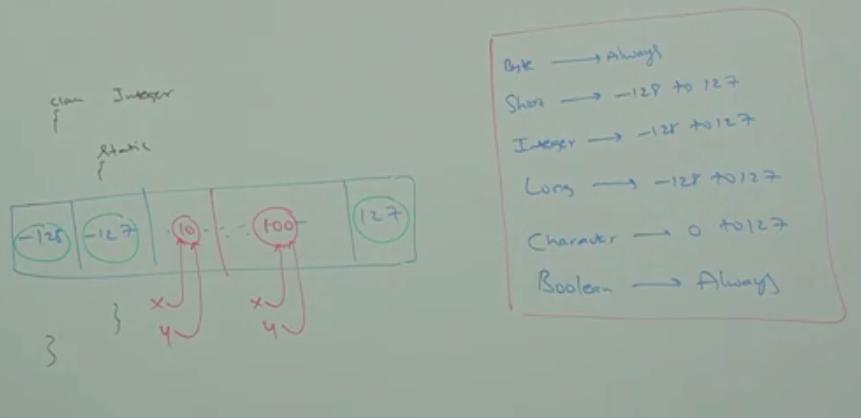 class Integer
{
static
{
-128 -127 10 - - - 100 127
x x
y y
}
}
Byte → Always
Short → -128 to 127
Integer → -128 to 127
Long → -128 to 127
Character → 0 to 127
Boolean → Always